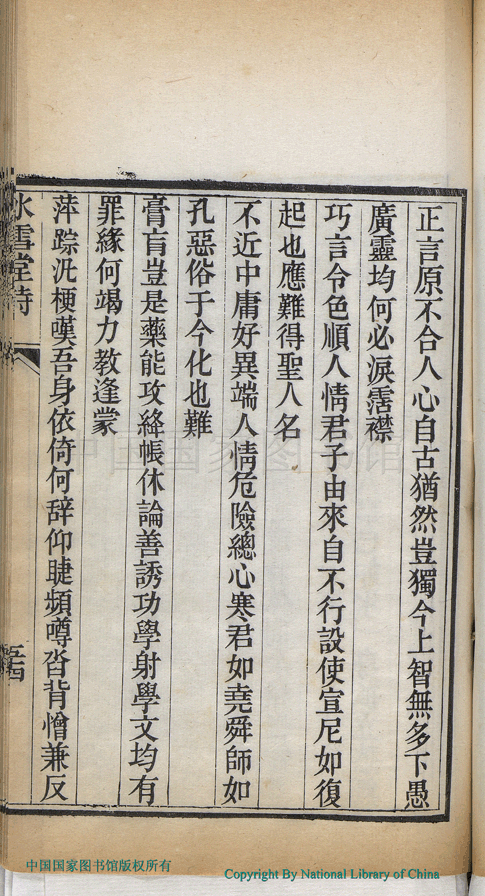 正言原不合人心自古猶然豈獨今上智無多下愚
廣靈均何必淚霑襟
巧言令色順人情君子由來自不行設使宣尼如復
起也應難得聖人名
不近中庸好異端人情危險總心寒君如堯舜師如
孔惡俗于今化也難
膏肓豈是藥能攻絳帳休論善誘功學射學文均有
罪緣何竭力教逢蒙
萍踪汎梗嘆吾身依倚何辭仰睫頻噂沓背憎兼反
冰雪堂詩
中国国家图书馆
中国国家图书馆版权所有
Copyright By National Library of China